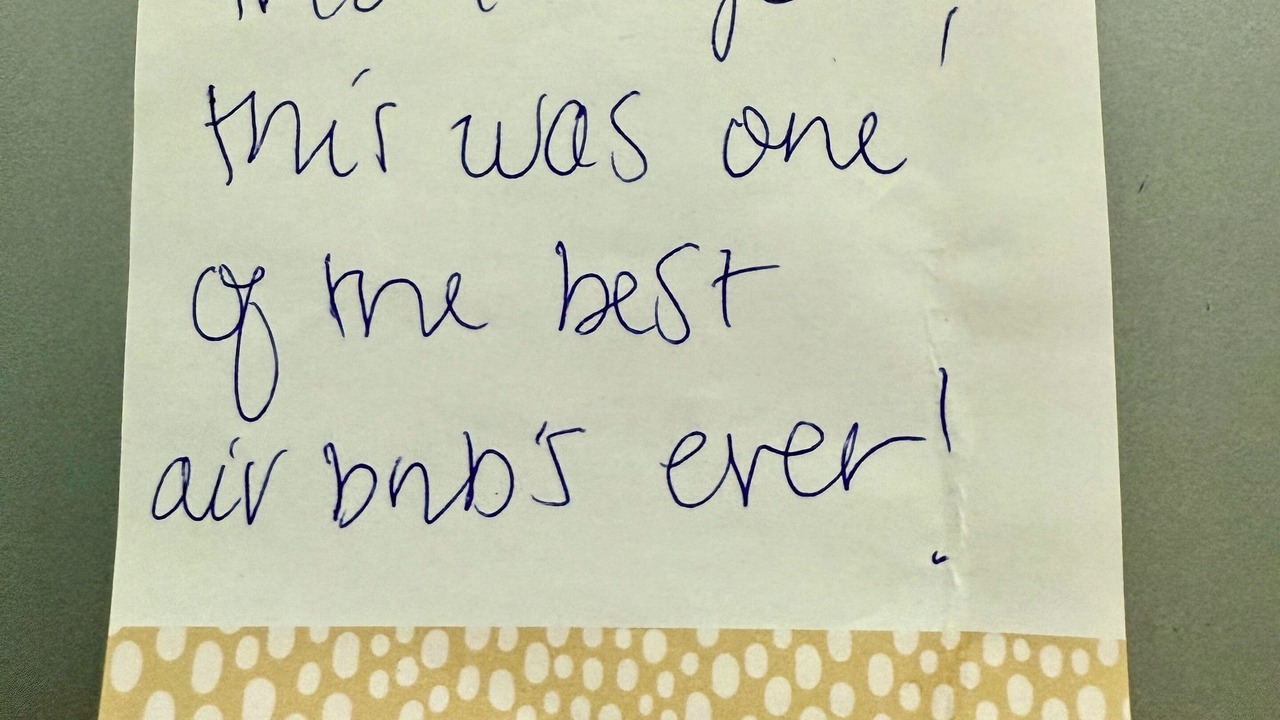 this was one
of the best
air bnb's ever!